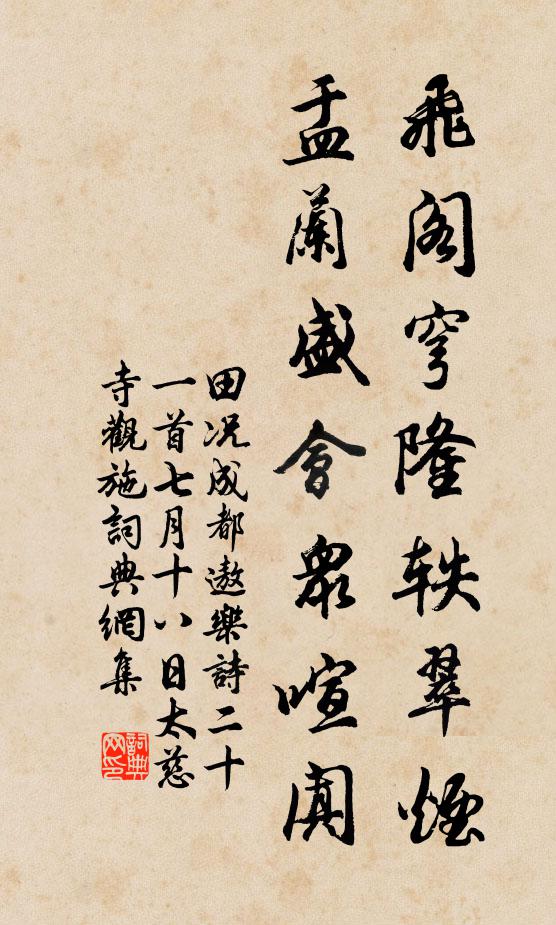 飛阁穹隆轶翠煙
盂蘭盛會衆喧闐
田况成都遨樂詩二十
一首七月十八日太慈
寺觀施詞典網集
詞典
网印